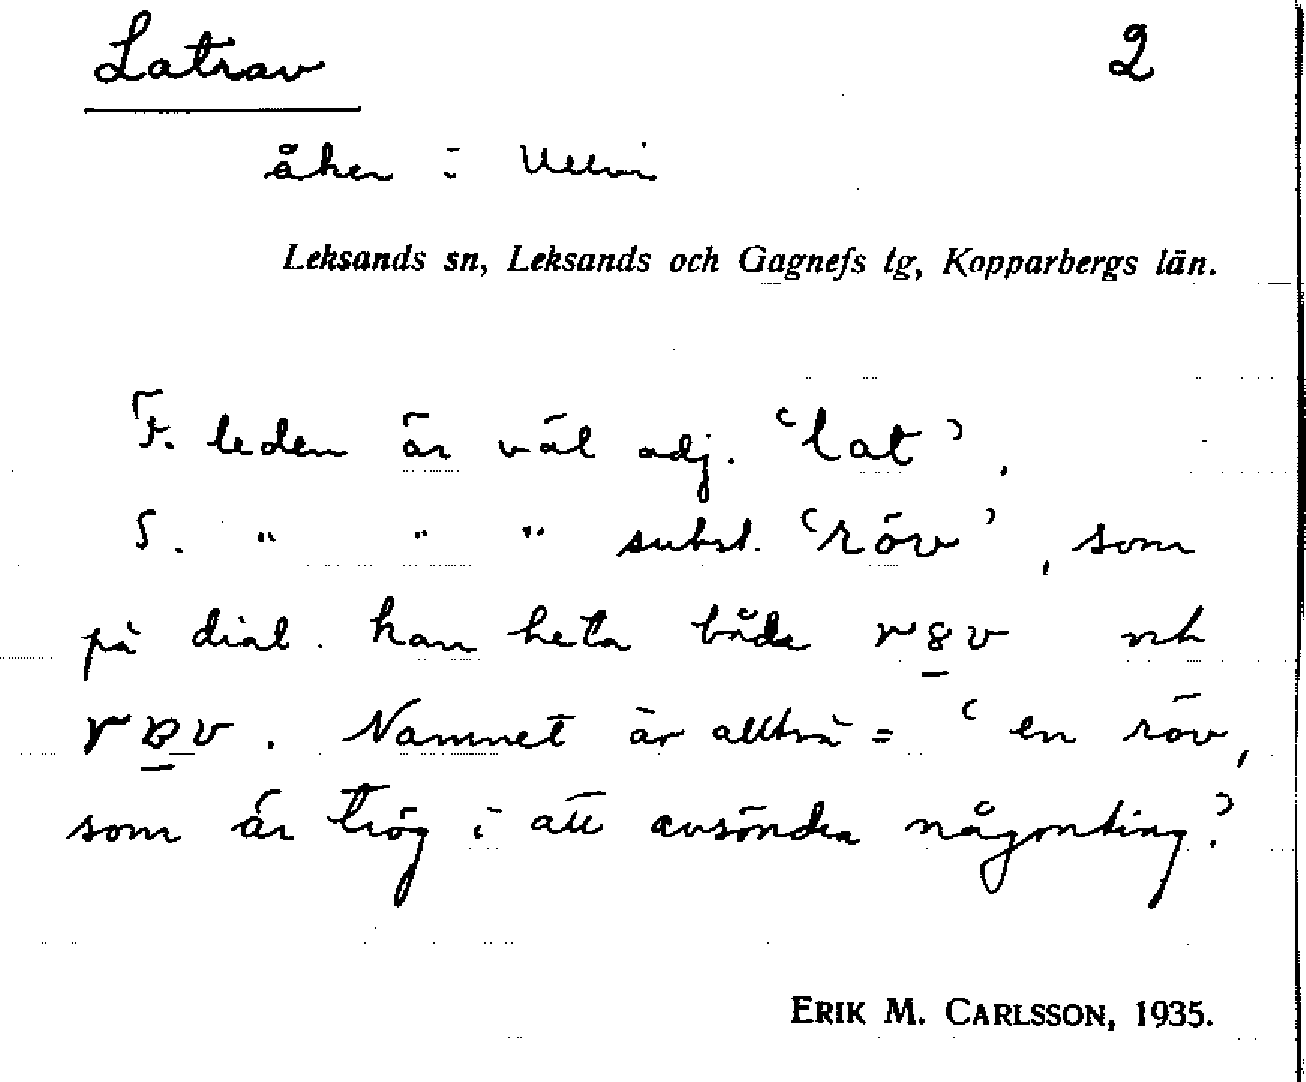 Latrav 2
åker i Ullvi
Leksands sn, Leksands och Gagnefs tg, Kopparbergs län.
F. leden är väl adj. 'lat'.
S. " " " subst. 'röv', som
på dial. kan heta både r8v och
rɞv. Namnet är alltså = 'en röv,
som är trög i att avsöndra någonting'.
ERIK M. CARLSSON, 1935.